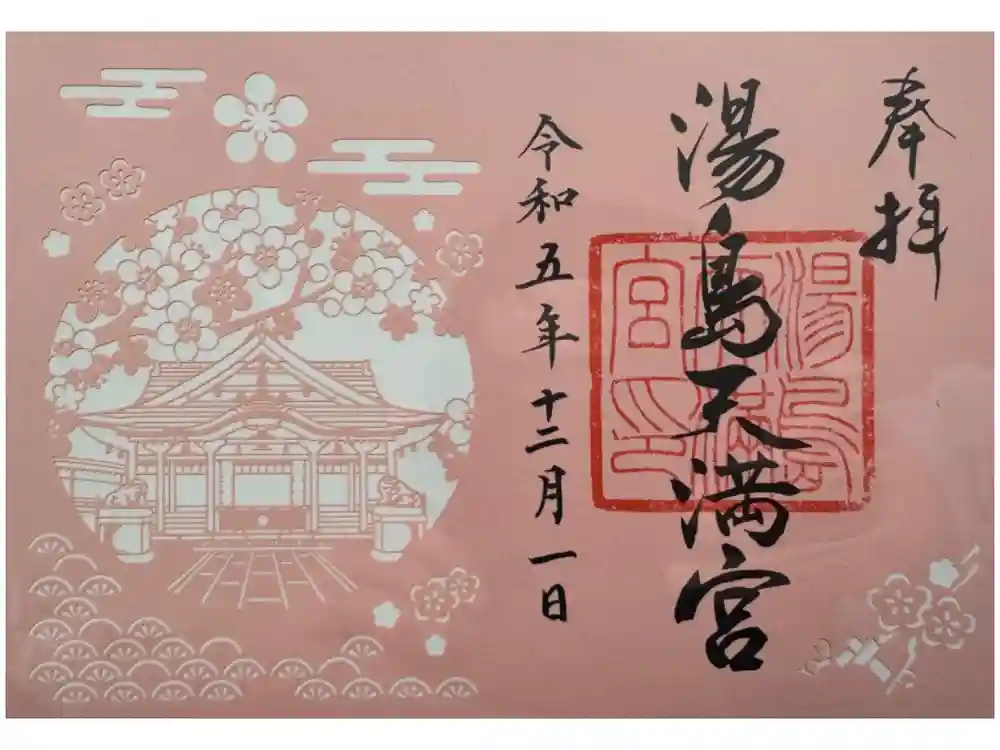 奉拝
湯島天満宮
湯島天満宮印
令和五年十二月一日